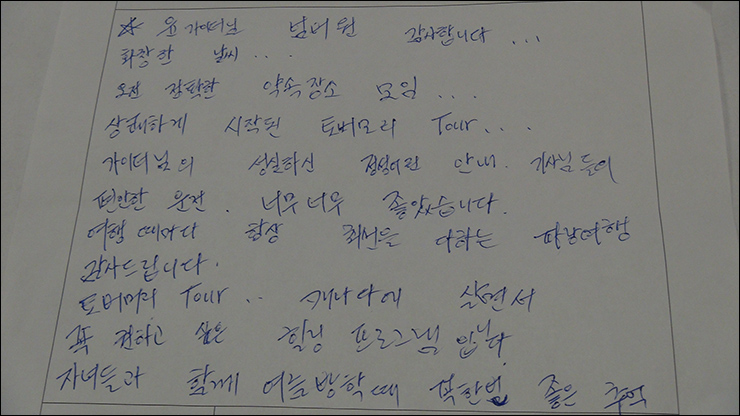 ☆ 윤 가이더님 넘버원 감사합니다 ...
화창한 날씨 ....
오전 간략한 약속장소 모임 ....
상쾌하게 시작된 토버모리 Tour ....
가이더님의 성실하신 정성어린 안내. 기사님들의
편안한 운전. 너무너무 좋았습니다.
여행때마다 항상 최선을 다하는 파랑여행
감사드립니다.
토버머리 Tour .. 캐나다에 살면서
꼭 권하고 싶은 힐링 프로그램 입니다
자녀들과 함께 여름방학때 꼭한번 좋은 추억